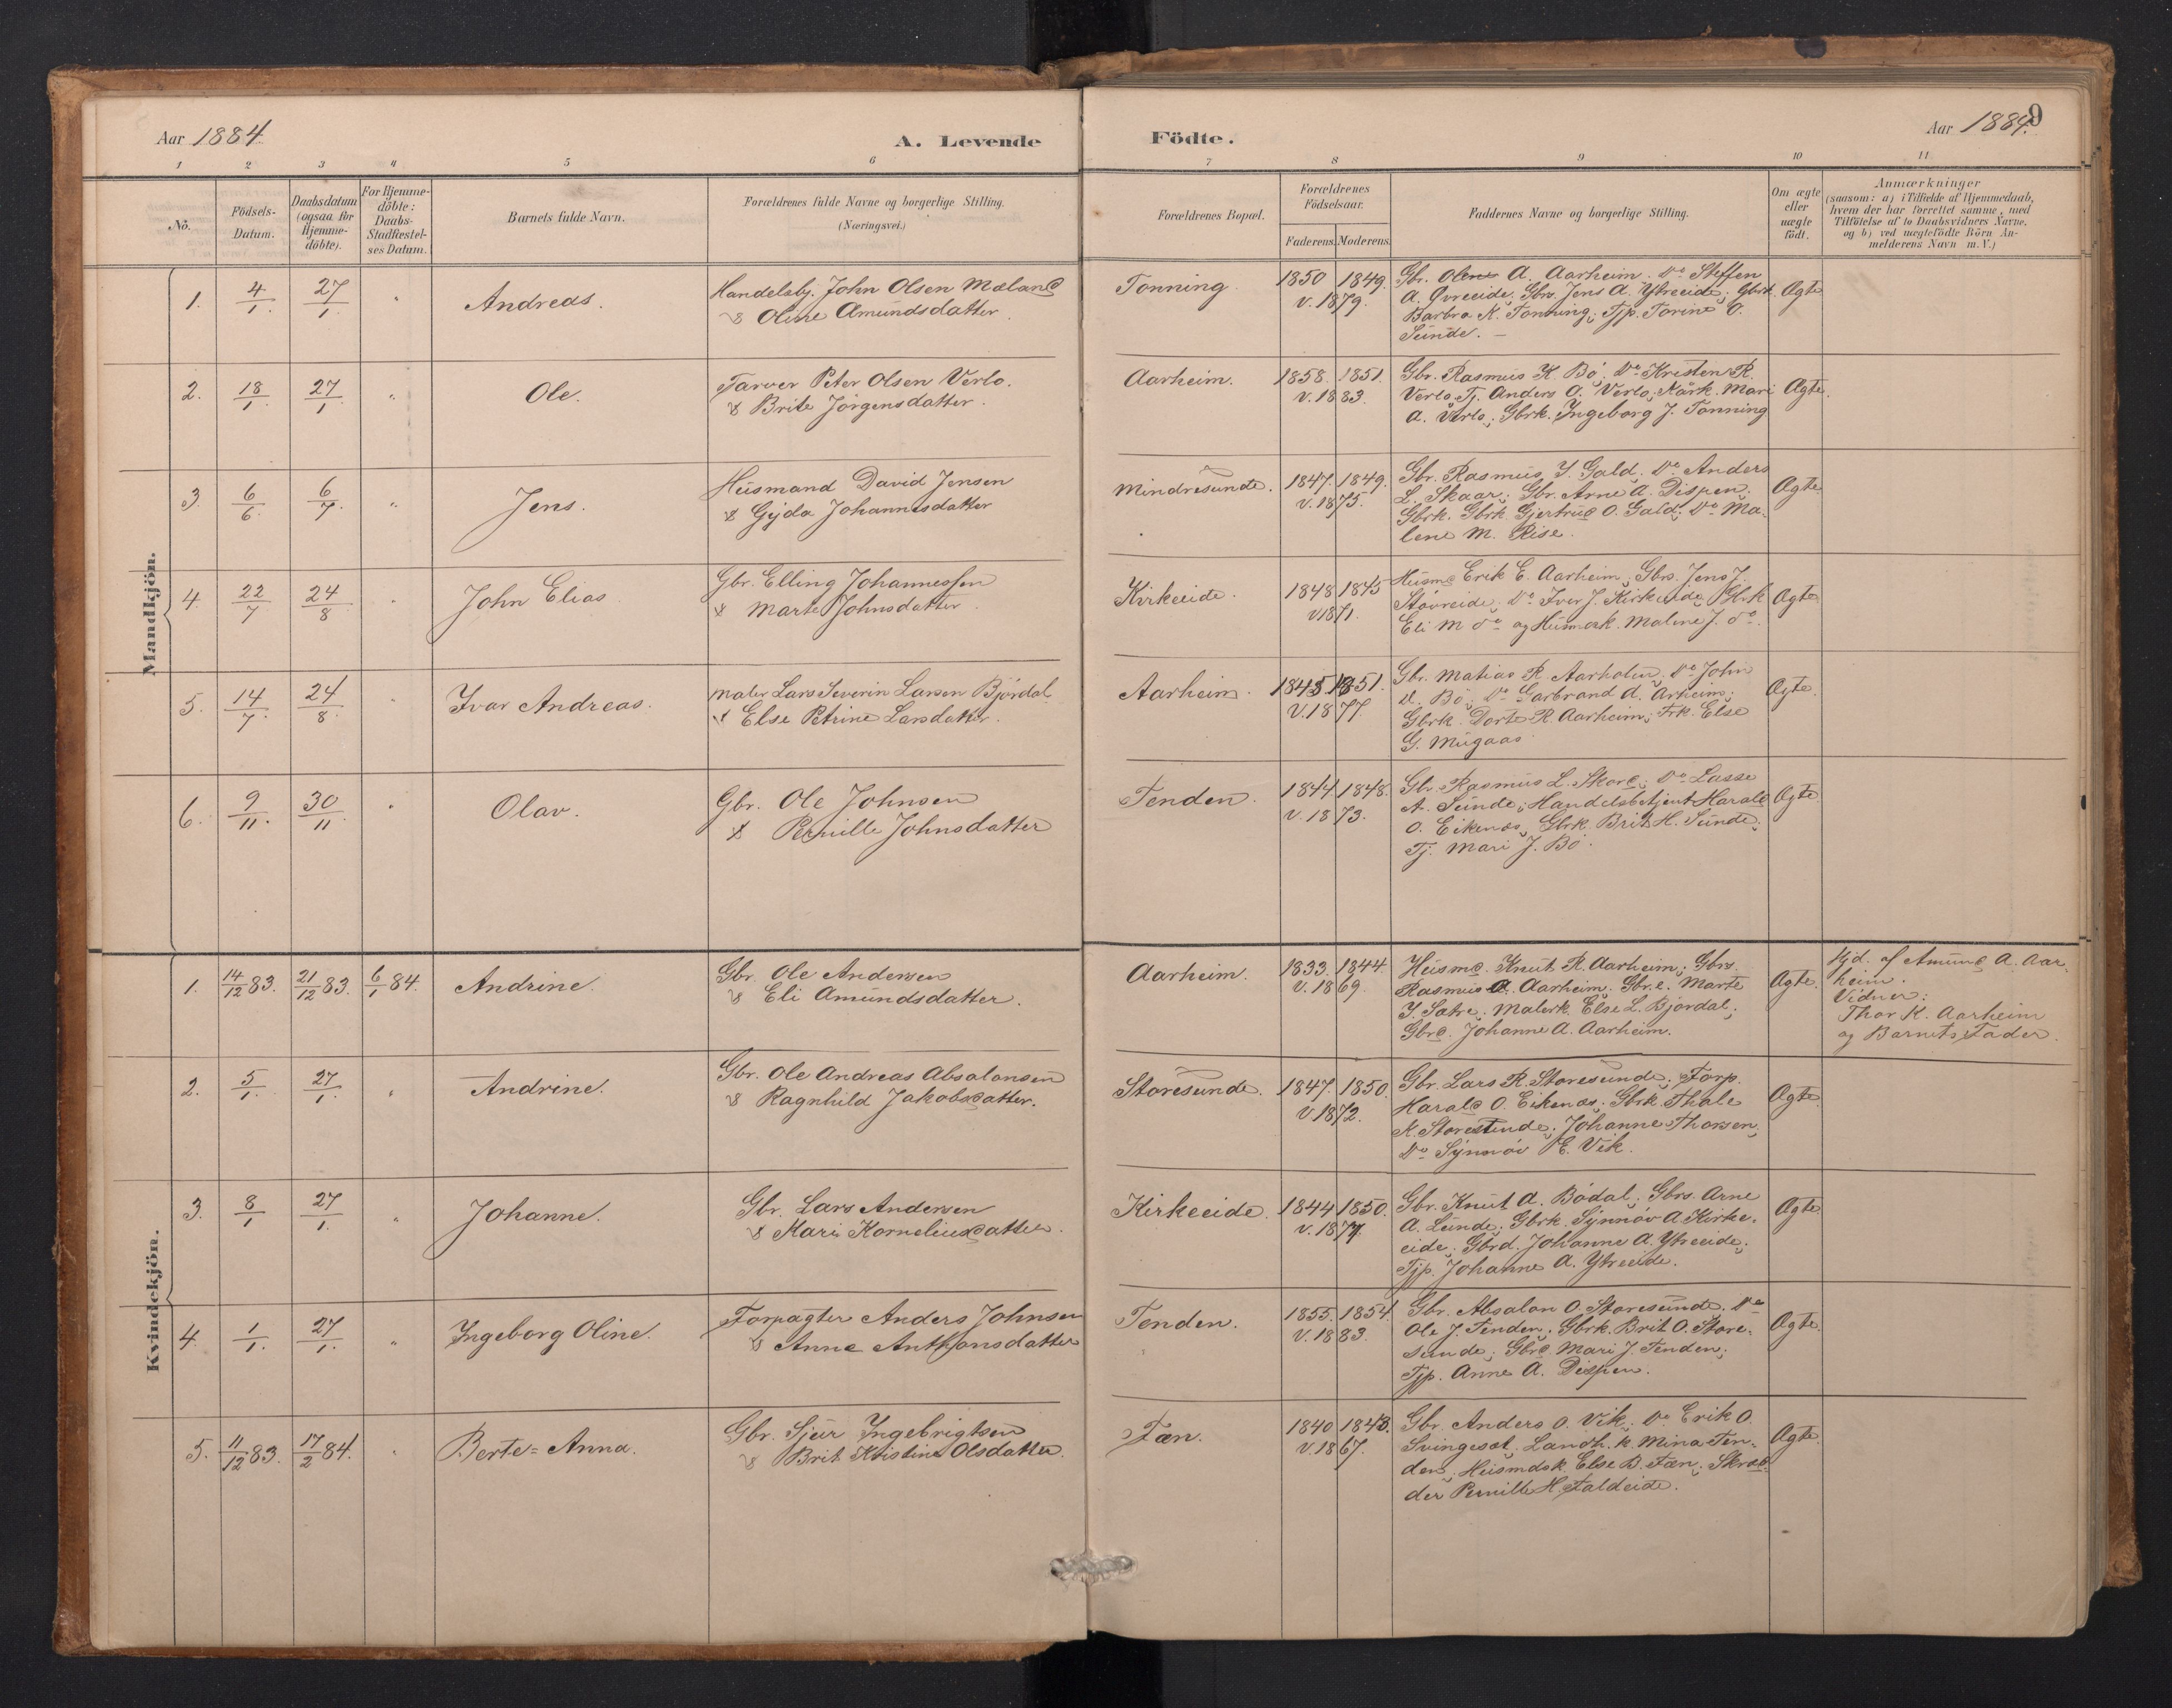 Aar 1884.
A. Levende Födte.
Aar 1884. 9
1 2 3 4 5 6 7 8 9 10 11
No.
Födsels-
Datum.
Daabsdatum
(ogsaa for
Hjemme-
döbte).
For Hjemme-
döbte:
Daabs-
Stadfæstel-
ses Datum.
Barnets fulde Navn.
Forældrenes fulde Navne og borgerlige Stilling.
(Næringsvei.)
Forældrenes Bopæl.
Forældrenes
Födselsaar.
Faderens. Moderens.
Faddernes Navne og borgerlige Stilling.
Om ægte
eller
uægte
födt.
Anmærkninger
(saasom: a) i Tilfælde af Hjemmedaab,
hvem der har forrettet samme, med
Tilföielse af to Daabsvidners Navne,
og b) ved uægtefödte Börn An-
melderens Navn m. V.)
Mandkjön.
1. 4/1. 27/1. " Andreas.
Handelsbj. John Olsen Mæland
& Oline Amundsdatter.
Tonning. 1850 1849.
v. 1879.
Gbr. Olene A. Aarheim. Do Steffen
A. Øvreeide; Gbrs Jens A. Ytreeide; Gbrk.
Barbra K. Tonning; Tjp. Torine O.
Sunde. —
Ægte
2. 18/1. 27/1. " Ole.
Farver Peter Olsen Verlo.
& Brite Jørgensdatter.
Aarheim. 1858. 1851.
v. 1883.
Gbr. Rasmus K. Bø. Do Kristen R.
Verlo, Tj. Anders O. Verlo; Kårk. Mari
A. Verlo; Gbrk. Ingeborg J. Tonning
Ægte.
3. 6/6. 6/7. " Jens.
Husmand David Jensen
& Gyda Johannesdatter
Mindresunde. 1847. 1849.
v. 1875.
Gbr. Rasmus J. Gald. Do Anders
L. Skaar; Gbr. Arne A. Dispen;
Gbrk. Gbrk Gjertrud O. Gald; Do Ma-
lene M. Rise.
Ægte
4. 22/7 24/8 " John Elias
Gbr. Elling Johannessen
& Marte Johnsdatter
Kirkeeide. 1848 1845
v 1871.
Husmd Erik E. Aarheim; Gbrs. Jens J.
Støvreide; Do Iver J. Kirkeeide; Gbrk
Eli M do og Husmdk. Malene J. do.
Ægte
5. 14/7. 24/8. " Ivar Andreas.
Maler Lars Severin Larsen Bjørdal
& Else Petrine Larsdatter.
Aarheim. 1845 1851.
v. 1877.
Gbr. Matias R. Aarholen. Do John
A. Bø; Do Garbrand A. Arheim;
Gbrk. Dorte R. Aarheim; Frk. Else
G. Mugaas
Ægte.
6. 9/11. 30/11 " Olav.
Gbr. Ole Johnsen
& Pernille Johnsdatter
Tenden. 1844 1848.
v. 1873.
Gbr. Rasmus L. Skore; Do Lasse
A. Sunde; Handelsbetjent Harald
O. Eikenæs; Gbrk. Brit H. Sunde;
Tj. Mari J. Bø.
Ægte
Kvindekjön.
1. 14/12 83. 21/12 83. 6/1 84. Andrine.
Gbr. Ole Andersen
& Eli Amundsdatter.
Aarheim. 1833. 1844.
v. 1869.
Husmd. Knut R. Aarheim; Gbrs.
Rasmus A. Aarheim; Gbr.e. Marte
J. Sætre; Malerk. Else L. Bjørdal;
Gbrd. Johanne A. Aarheim.
Ægte
Hjd. af Amund A. Aar-
heim.
Vidner:
Thor K. Aarheim
og Barnets Fader.
2. 5/1. 27/1. " Andrine.
Gbr. Ole Andreas Absalonsen
& Ragnhild Jakobsdatter.
Storesunde. 1847. 1850.
v 1872.
Gbr. Lars R. Storesunde; Forp.
Harald O. Eikenæs; Gbrk. Thale
K. Storesunde; Johanne Thorsen;
Do Synnøv E. Vik.
Ægte
3. 8/1 27/1. " Johanne.
Gbr. Lars Andersen
& Mari Korneliusdatter.
Kirkeeide. 1844 1850.
v. 1877.
Gbr. Knut A. Bødal; Gbrs. Arne
A. Lunde; Gbrk. Synnøv A. Kirke-
eide; Gbrd. Johanne A. Ytreeide;
Tjp. Johanne A. Ytreeide.
Ægte.
4. 1/1. 27/1. " Ingeborg Oline.
Forpagter Anders Johnsen
& Anne Anthonsdatter
Tenden. 1855. 1854.
v. 1883.
Gbr. Absalon O. Storesunde. Do
Ole J. Tenden. Gbrk. Brit O. Store-
sunde; Gbrd. Mari J. Tenden;
Tjp. Anne A. Dispen.
Ægte.
5. 11/12 83. 17/2 84. " Berte= Anna.
Gbr. Sjur Ingebrigtsen
& Brit Kristine Olsdatter.
Fæn. 1840 1843.
v. 1867.
Gbr. Anders O. Vik; Do Erik O.
Svingesæt; Landh.k. Mina Ten-
den; Husmdsk. Else B. Fæn; Skræd-
der Pernille H. Faldeide.
Ægte.